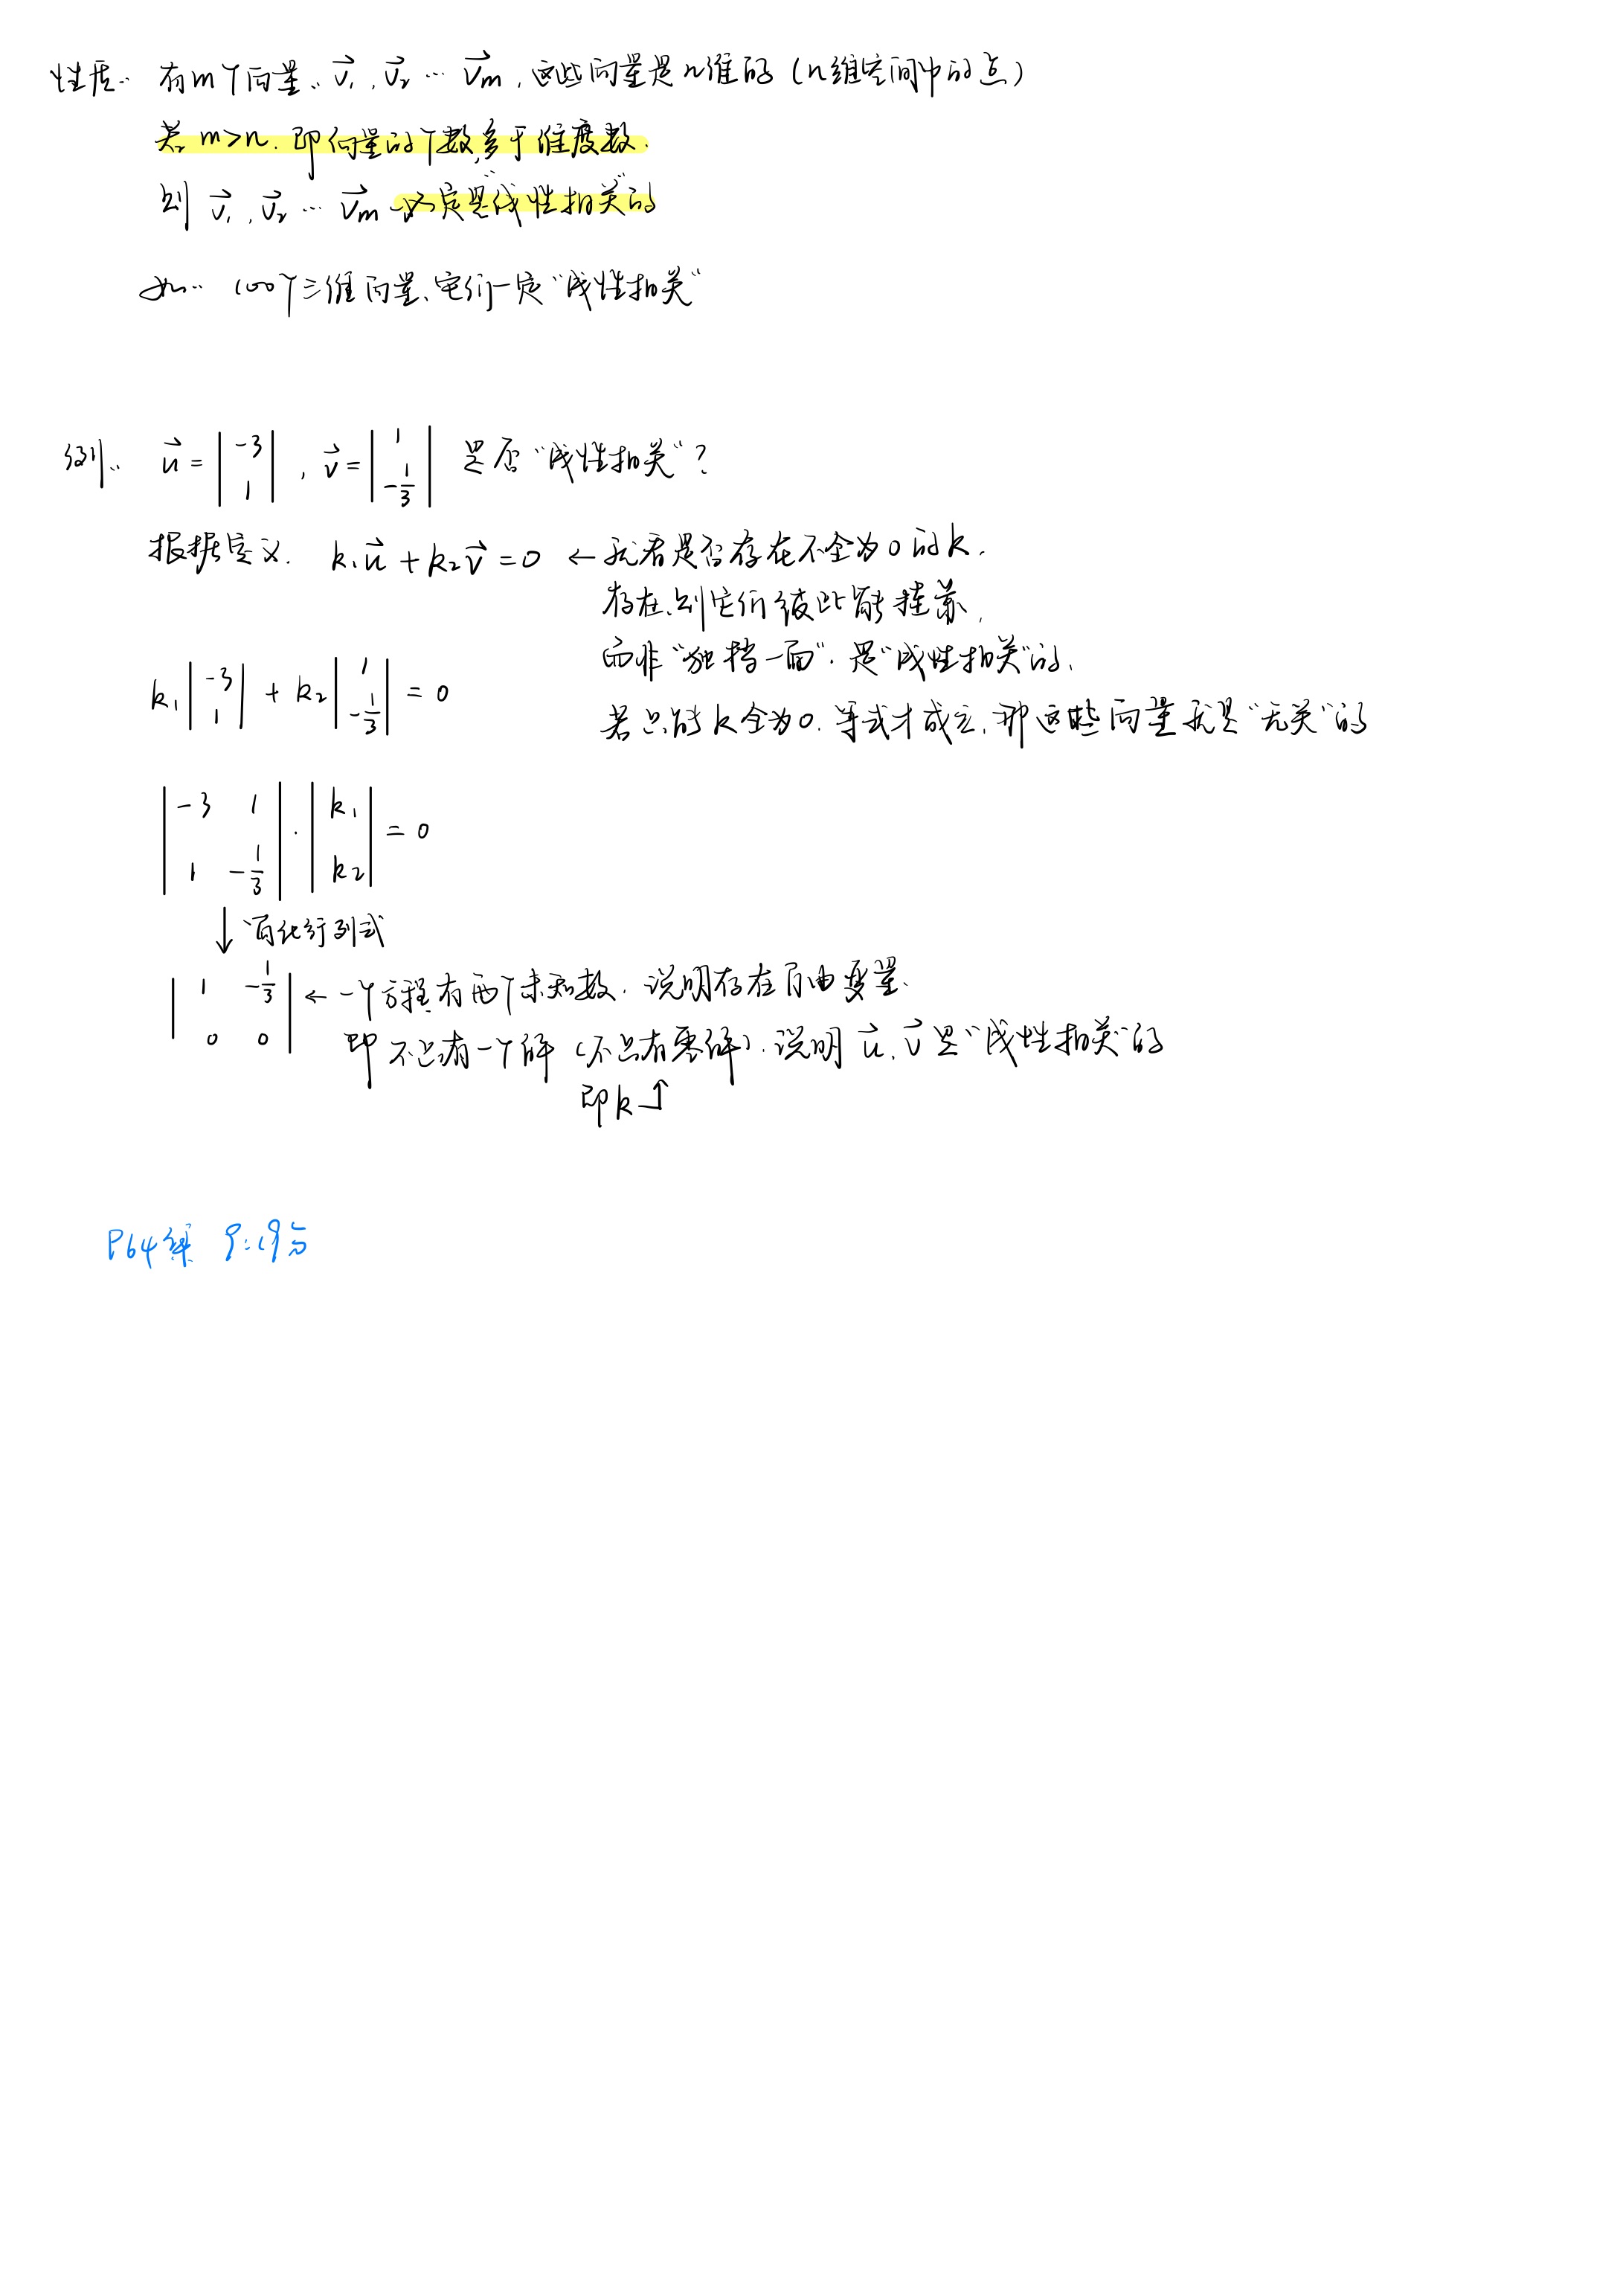 性质： 有m个向量：v⃗₁, v⃗₂ … v⃗ₘ，这些向量是n维的（n维空间中的点）
若 m>n. 即向量的个数多于维度数.
则 v⃗₁, v⃗₂ … v⃗ₘ 必定是“线性相关”的
如： 100个三维向量、它们一定“线性相关”
例： u⃗ = |-3 1|, v⃗ = |1 -1/3| 是否“线性相关”？
根据定义. k₁u⃗ + k₂v⃗ = 0 ← 就看是否存在不全为0的k.
存在,则它们彼此能
而非“独挡一面”. 是“线性相关”的.
k₁|-3 1| + k₂|1 -1/3| = 0
若只能k全为0. 等式才成立. 那这些向量就是“无关”的
|-3 1; 1 -1/3| · |k₁ k₂| = 0
↓ 简化行列式
|1 -1/3; 0 0| ← 一个方程有两个未知数. 说明存在自由变量.
即不只有一个解（不只有零解）. 说明 u⃗, v⃗ 是“线性相关”的
即k↑
P64 9:19